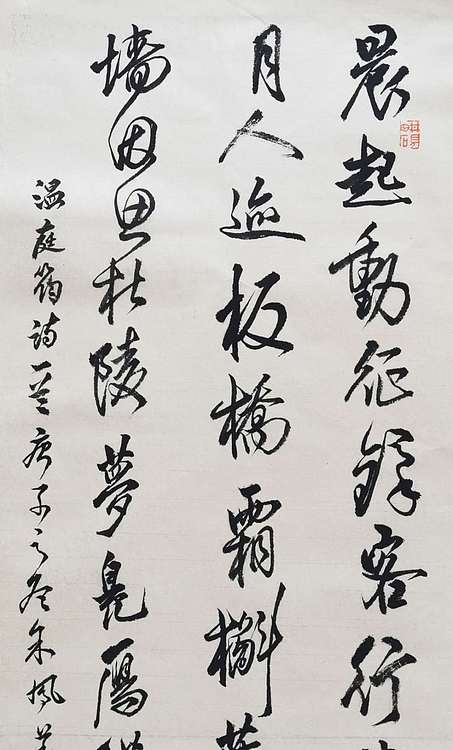 晨起動征鐸客行
月人迹板橋霜槲
墻因思杜陵夢鳧鴈
温庭筠詩一首庚子之冬